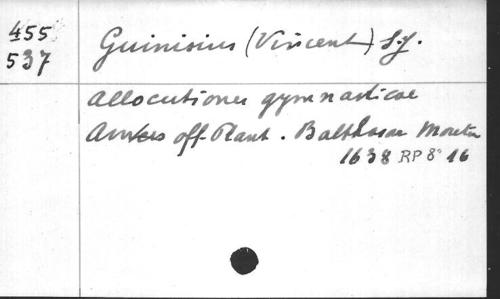 455
537
Guinisius (Vincent) S.J.
Allocutiones gymnasticae
Anvers off. Plant. Balthasar Moretu
1638 RP 8° 16